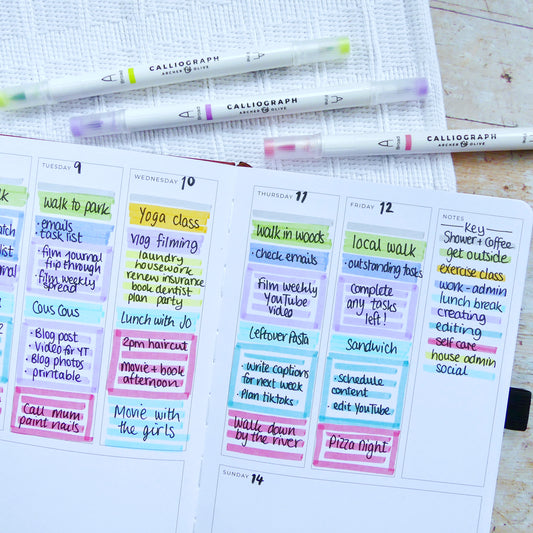 CALLIOGRAPH
ARCHER & OLIVE
Broad
CALLIOGRAPH
ARCHER & OLIVE
Broad
CALLIOGRAPH
ARCHER & OLIVE
Broad
TUESDAY 9
walk to park
• emails
• task list
• film journal
flip through
• film weekly
spread
Cous Cous
• Blog post
• Video for YT
• Blog photos
• printable
Call mum
paint nails
WEDNESDAY 10
Yoga class
Vlog filming
laundry
housework
renew insurance
book dentist
plan party
Lunch with Jo
2pm haircut
movie + book
afternoon
Movie with
the girls
THURSDAY 11
walk in woods
• check emails
Film weekly
YouTube
video
Leftover Pasta
• write captions
for next week
• Plan tiktoks
Walk down
by the river
SUNDAY 14
FRIDAY 12
local walk
• outstanding tasks
complete
any tasks
left!
Sandwich
• schedule
content
• edit YouTube
Pizza Night
NOTES
Key
Shower + Coffee
get outside
exercise class
work - admin
lunch break
creating
editing
self care
house admin
social